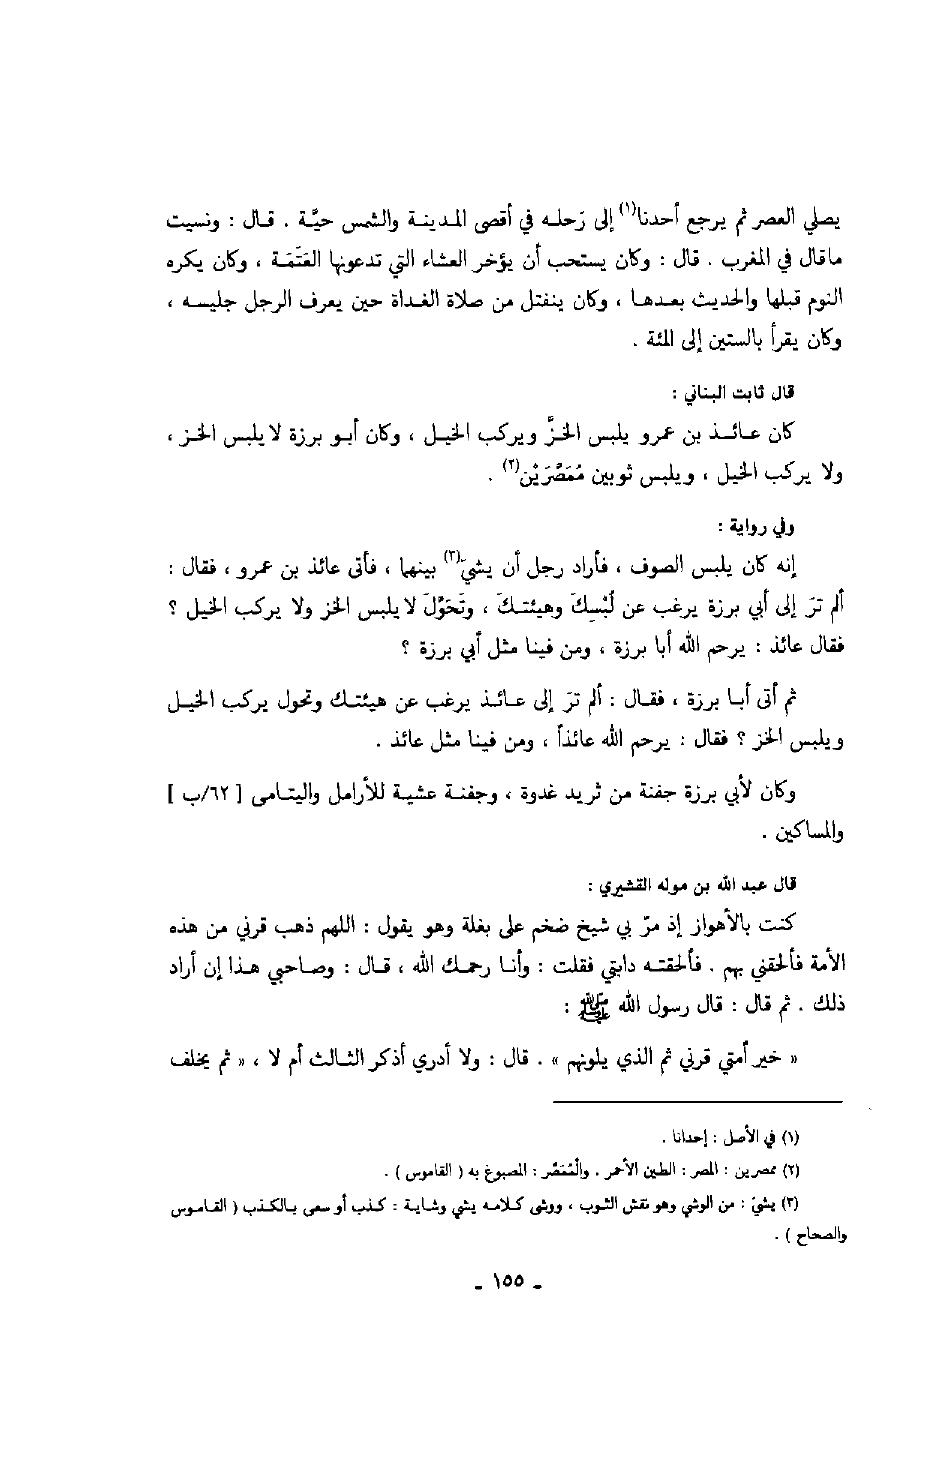 يصلي العصر ثم يرجع أحدنا(١) إلى رَحله في أقصى المدينة والشمس حيَّة . قال : ونسيت
ماقال في المغرب . قال : وكان يستحب أن يؤخر العشاء التي تدعونها العَتَمَة ، وكان يكره
النوم قبلها والحديث بعدها ، وكان ينفتل من صلاة الغداة حين يعرف الرجل جليسه ،
وكان يقرأ بالستين إلى المئة .
قال ثابت البناني :
كان عائذ بن عمرو يلبس الخزَّ ويركب الخيل ، وكان أبو برزة لا يلبس الخز ،
ولا يركب الخيل ، ويلبس ثوبين مُمَصَّرَيْن(٢) .
وفي رواية :
إنه كان يلبس الصوف ، فأراد رجل أن يشيَ(٣) بينهما ، فأتى عائذ بن عمرو ، فقال :
ألم ترَ إلى أبي برزة يرغب عن لُبْسِكَ وهيئتكَ ، وتَحَوَّلَ لا يلبس الخز ولا يركب الخيل ؟
فقال عائذ : يرحم الله أبا برزة ، ومن فينا مثل أبي برزة ؟
ثم أتى أبا برزة ، فقال : ألم ترَ إلى عائذ يرغب عن هيئتك وتحول يركب الخيل
ويلبس الخز ؟ فقال : يرحم الله عائذاً ، ومن فينا مثل عائذ .
وكان لأبي برزة جفنة من ثريد غدوة ، وجفنة عشية للأرامل واليتامى [ ٦٢/ب ]
والمساكين .
قال عبد الله بن موله القشيري :
كنت بالأهواز إذ مرّ بي شيخ ضخم على بغلة وهو يقول : اللهم ذهب قرني من هذه
الأمة فألحقني بهم . فألحقته دابتي فقلت : وأنا رحمك الله ، قال : وصاحبي هذا إن أراد
ذلك . ثم قال : قال رسول الله ﷺ :
« خير أمتي قرني ثم الذي يلونهم » . قال : ولا أدري أذكر الثالث أم لا ، « ثم يخلف
(١) في الأصل : إحدانا .
(٢) ممصرين : المصر : الطين الأحمر . والْمُمَصَّر : المصبوغ به ( القاموس ) .
(٣) يشيَ : من الوشي وهو نقش الثوب ، ووشى كلامه يشي وشاية : كذب أو سعى بالكذب ( القاموس
والصحاح ) .
- ١٥٥ -